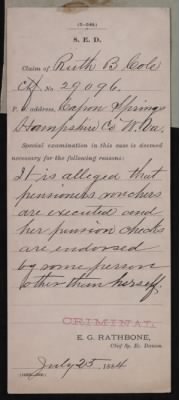 (3-044.)
S. E. D.
Claim of Ruth B Cole
Ctf. No. 29096.
P. O. address, Capon Springs
Hampshire Co W. Va.
Special examination in this case is deemed
necessary for the following reasons:
It is alleged that
pensioners vouchers
are executed and
her pension checks
are endorsed
by some person
other than herself.
CRIMINAL
E. G. RATHBONE,
Chief Sp. Ex. Division
July 25 1884